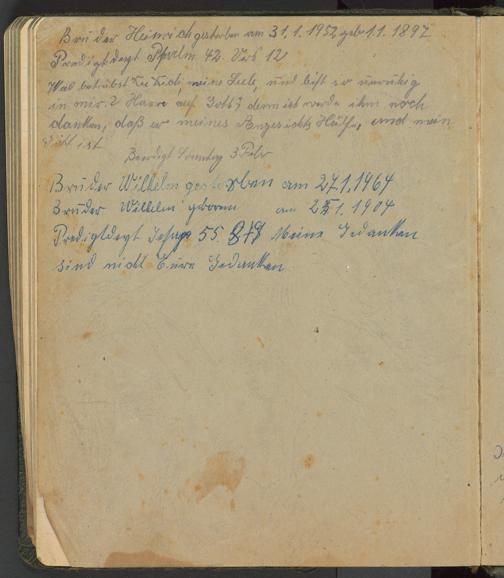 Bruder Heinrich gestorben am 31.1.1952 geb 1.1.1897
Predigtdegt Psalm 42. Vers 12
Was betrübst du dich, meine Seele, und bist so unruhig
in mir? Harre auf Gott; denn ich werde ihm noch
danken, daß er meines Angesichts Hülfe, und mein
Gott ist
Beerdigt Sonntag 3 Febr
Bruder Wilhelm gestorben am 27.1.1964
Bruder Wilhelm geboren am 1. 1904
Predigtdegt 55. 8+9 Meine Gedanken
sind nicht Eure Gedanken